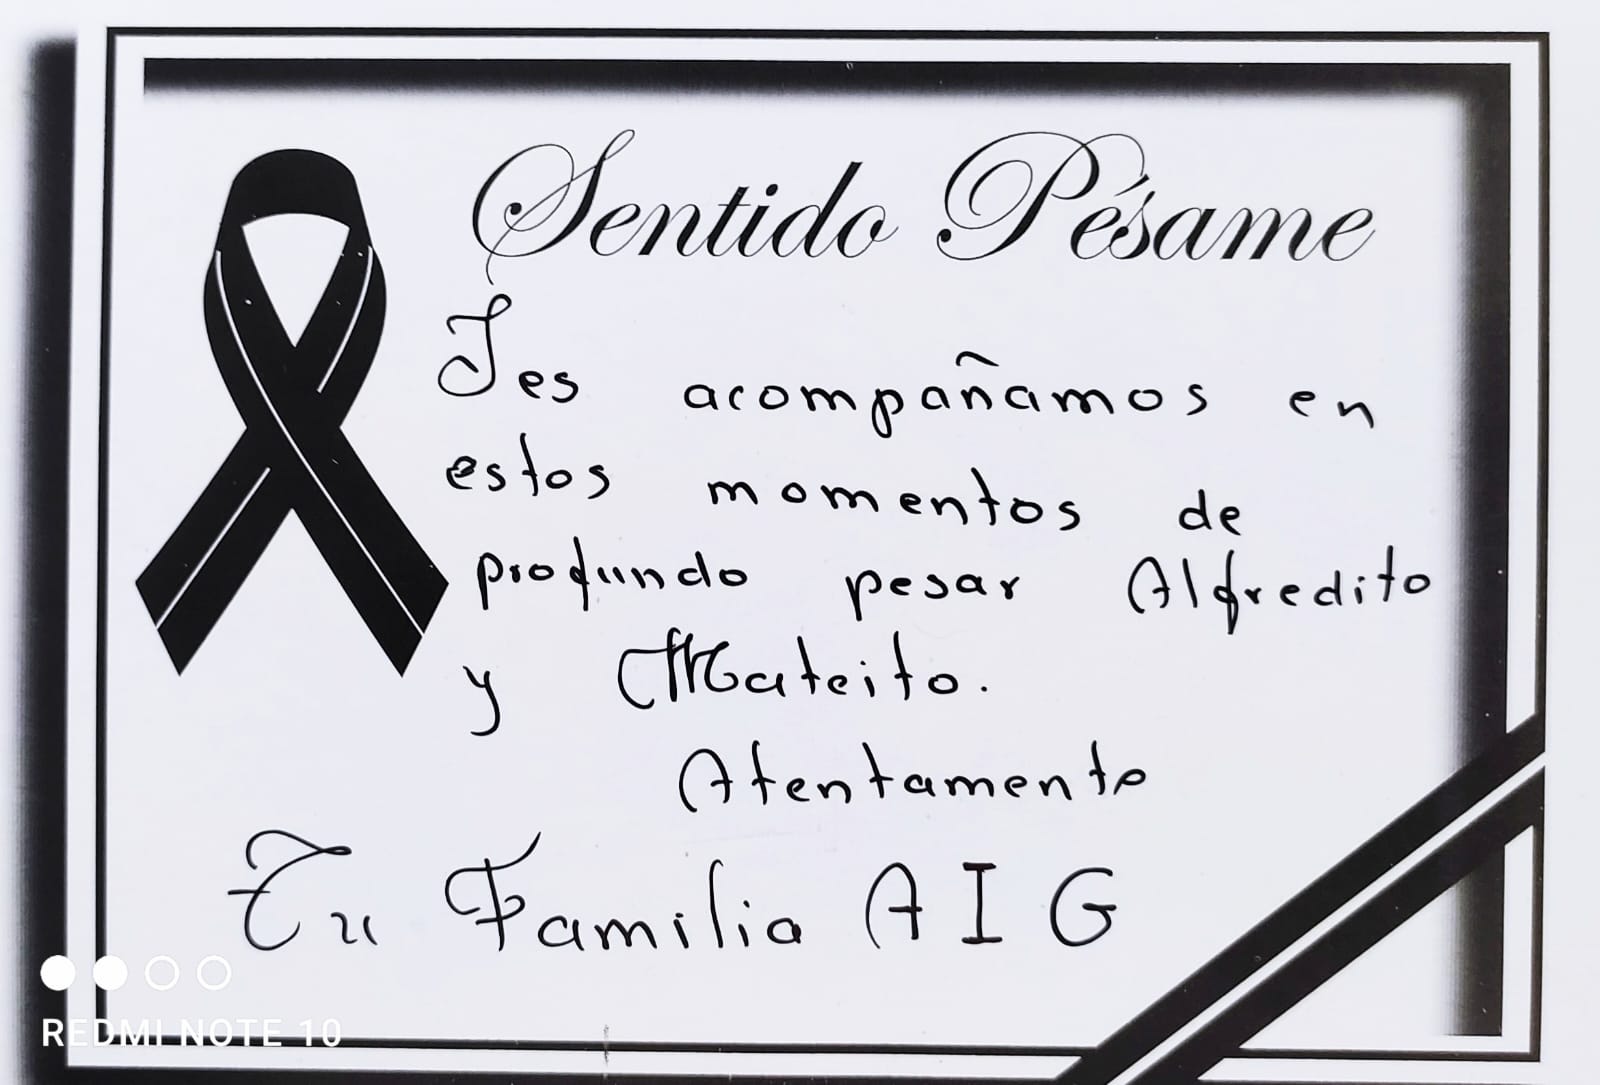 Sentido Pésame
Les acompañamos en
estos momentos de
profundo pesar Alfredito
y Mateito.
Atentamente
Tu Familia AIG
REDMI NOTE 10